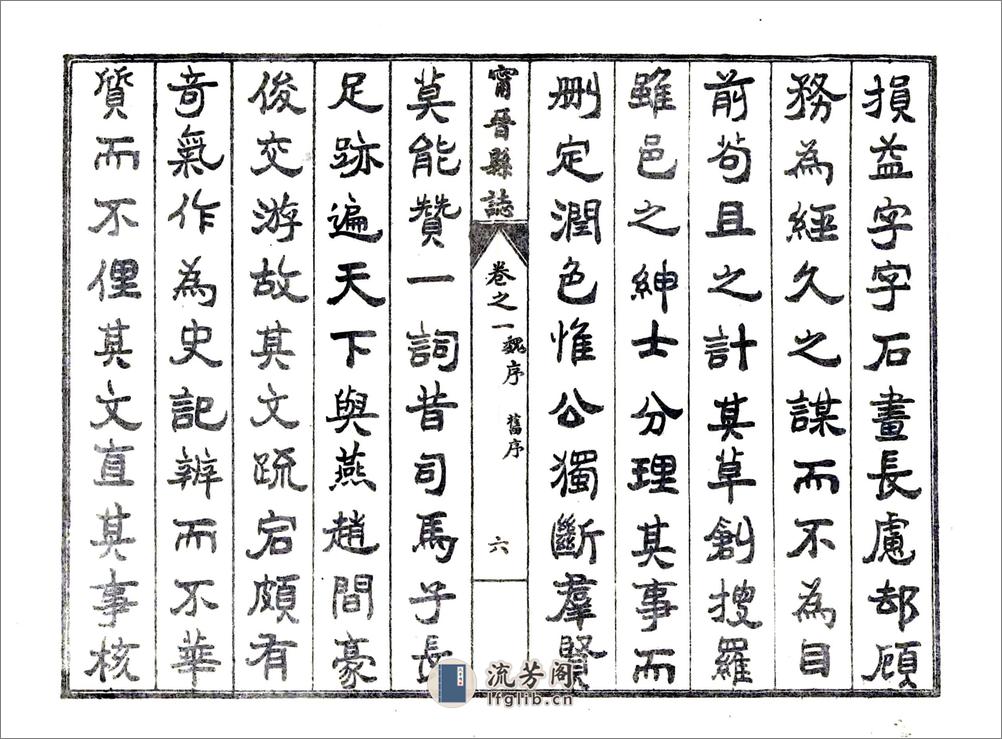 損益字字石畫長慮却顧
務為經久之謀而不為目
前茍且之計其草創搜羅
雖邑之紳士分理其事而
刪定潤色惟公獨斷羣賢
甯晉縣誌
卷之一 魏序 舊序
六
莫能贊一詞昔司馬子長
足跡遍天下與燕趙間豪
俊交游故其文疏宕頗有
竒氣作為史記辨而不華
質而不俚其文直其事核
流芳阁
lfglib.cn